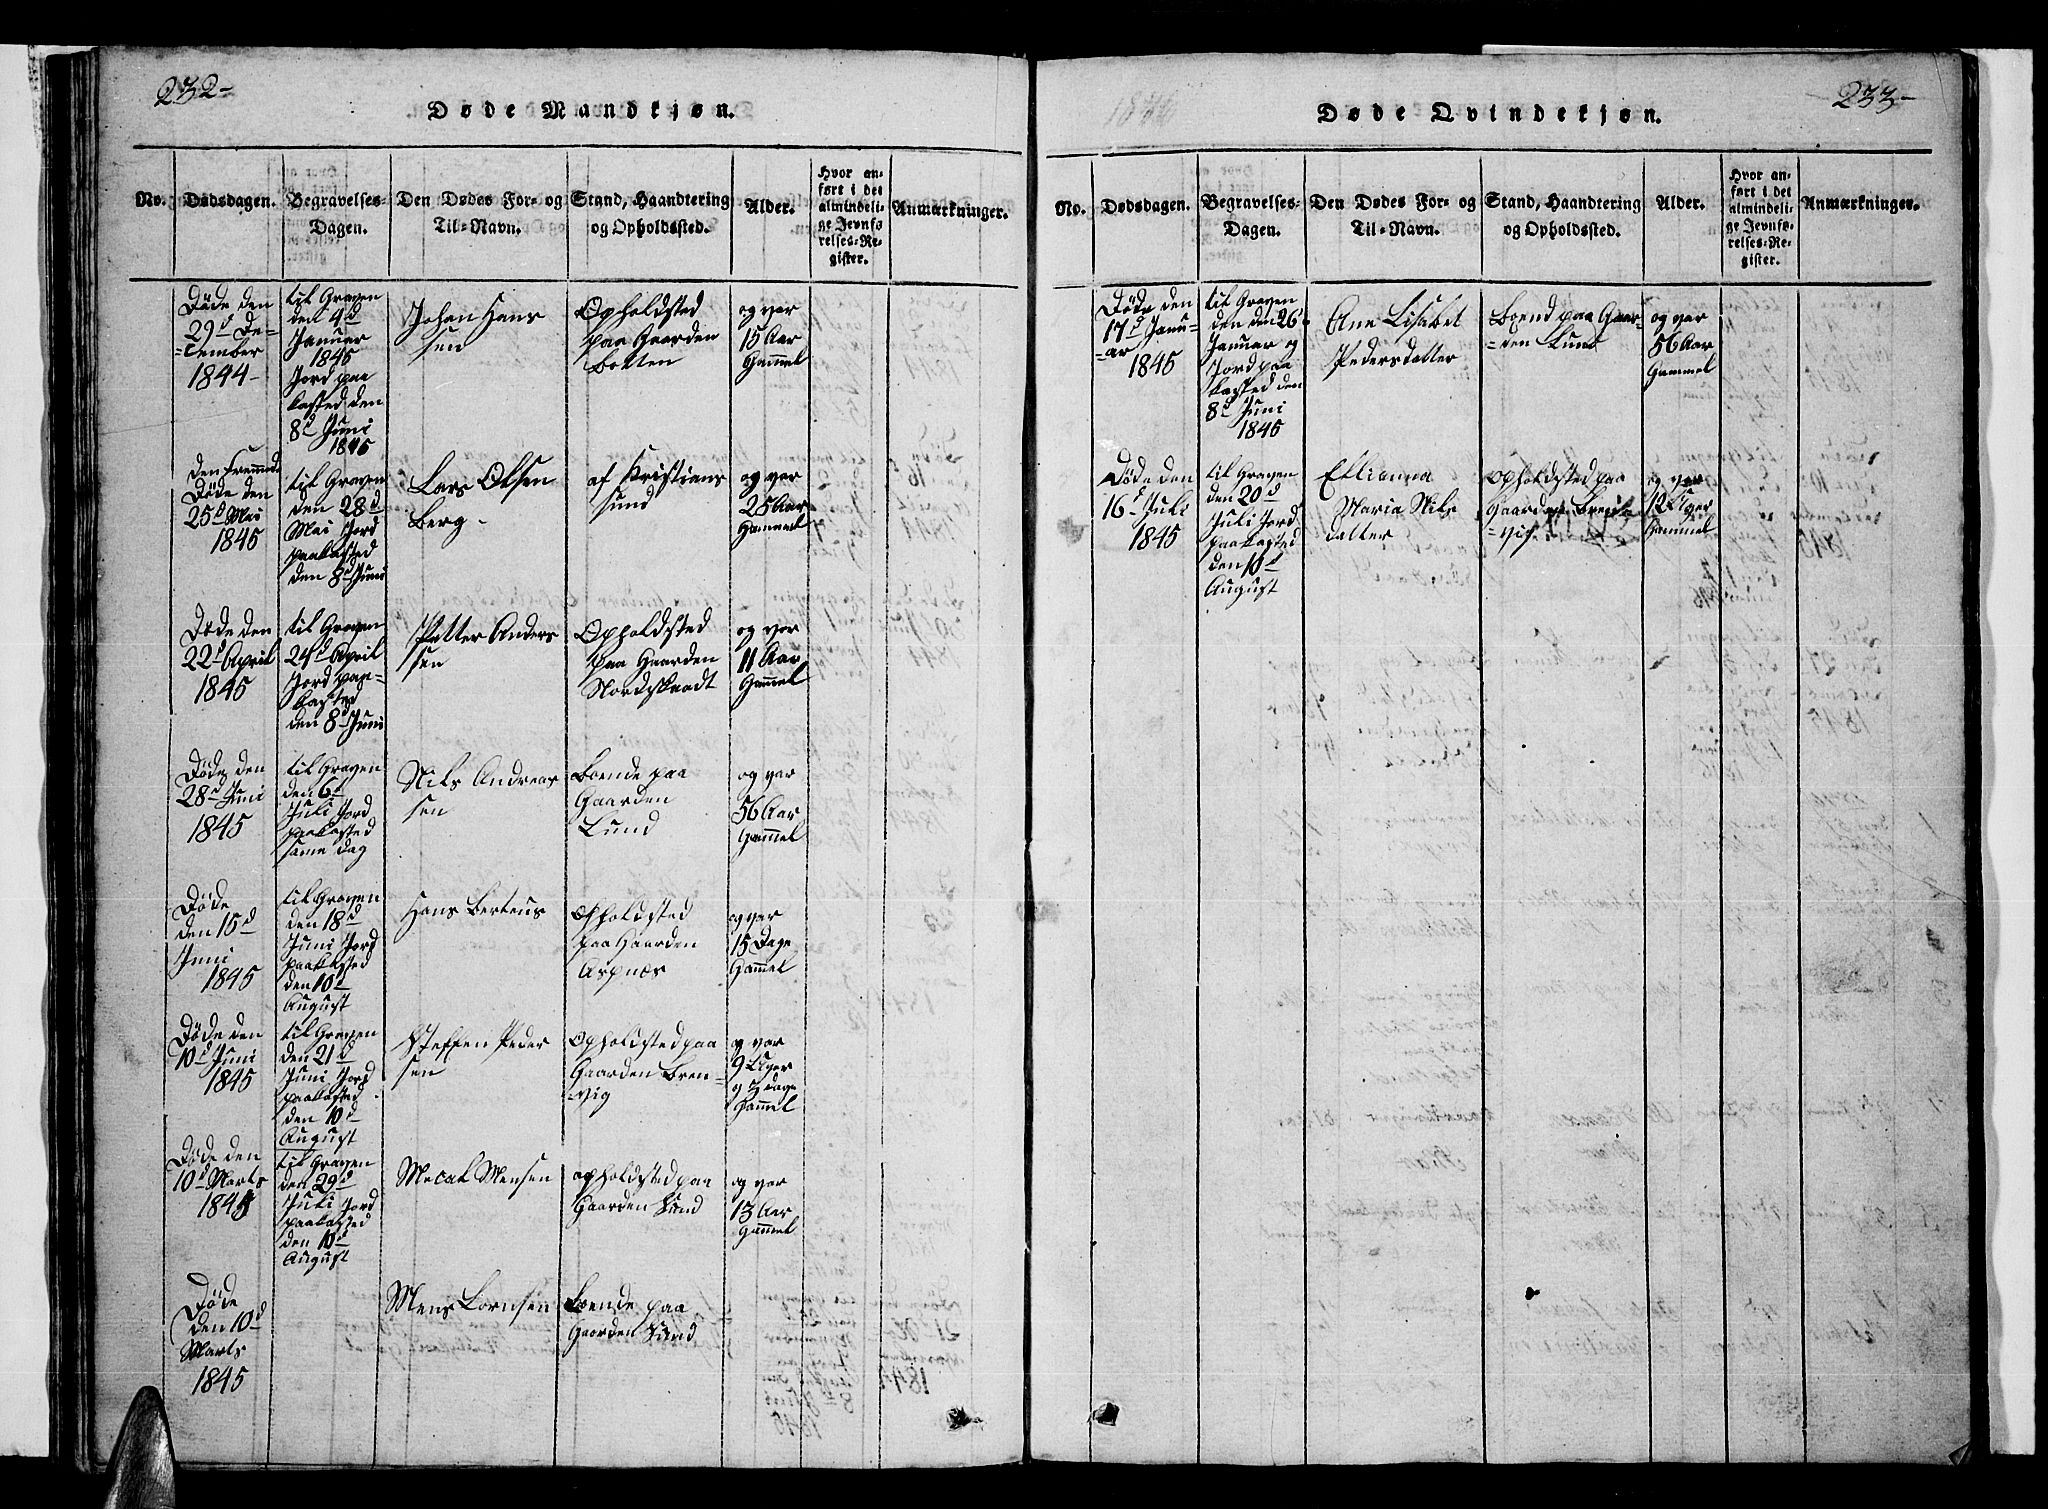 232-
Døde Mandkjøn.
No.
Dødsdagen.
Begravelses-
Dagen.
Den Dødes For- og
Til-Navn.
Stand, Haandtering
og Opholdssted.
Alder.
Hvor an-
ført i det
almindeli-
ge Jevnfø-
relses-Re-
gister.
Anmærkninger.
Døde den
29d De-
=cember
1844-
til Graven
den 4d
Januar
1845
Jord paa
kasted den
8d Juni
1845
Johan Hans
sen
Opholdsted
paa Gaarden
Botten
og var
15 Aar
Gammel
den fremmede
Døde den
25d Mai
1845
til Graven
den 28d
Mai Jord
paakasted
den 8d Juni
Lars Olsen
Berg -
af Kristians
sund
og var
25 Aar
Gammel
Døde den
22d April
1845
til Graven
24d April
Jord paa-
kasted
den 8d Juni
Petter Anders
sen
Opholdsted
paa Gaarden
Nordskaadt
og var
11 Aar
Gammel
Døde den
28d Juni
1845
til Graven
den 6d
Juli Jord
paakasted
same dag
Nils Andreas
sen
Boende paa
Gaarden
Lund
og var
56 Aar
Gammel
Døde
den 15d
Juni
1845
til Graven
den 18d
Juni Jord
paakasted
den 10d
August
Hans Berteus
Opholdsted
paa Gaarden
Aspnæs
og var
15 Dage
Gammel
Døde den
10d Juni
1845
til Graven
den 21d
Juni Jord
paakasted
den 10d
August
Steffen Peder
sen
Opholdsted paa
Gaarden Bren-
vig
og var
9 Uger
og 5 dage
Gammel
Døde den
10d Marts
1845
til Graven
den 29d
Juli Jord
paakasted
den 10d
August
Mecal Mensen
opholdsted paa
Gaarden Lund
og var
13 Aar
Gammel
Døde
den 10d
Marts
1845
Mens Lornsen
Boende paa
Gaarden Lund
233-
Døde Qvindekjøn.
No.
Dødsdagen.
Begravelses-
Dagen.
Den Dødes For- og
Til-Navn.
Stand, Haandtering
og Opholdssted.
Alder.
Hvor an-
ført i det
almindeli-
ge Jevnfø-
relses-Re-
gister.
Anmærkninger.
Døde den
17d Janu-
=ar
1845
til Graven
den den 26d
Januar og
Jord paa
kasted den
8d Juni
1845
Ane Lisabet
Pedersdatter
Boend paa Gaar-
=den Lund
og var
56 Aar
Gammel
Døde den
16d Juli
1845
til Graven
den 20d
Juli Jord
paakasted
den 10d
August
Ellianna
Maria Nils
datter
opholdsted paa
Gaarden Bren
=vig
og var
12 Uger
Gammel